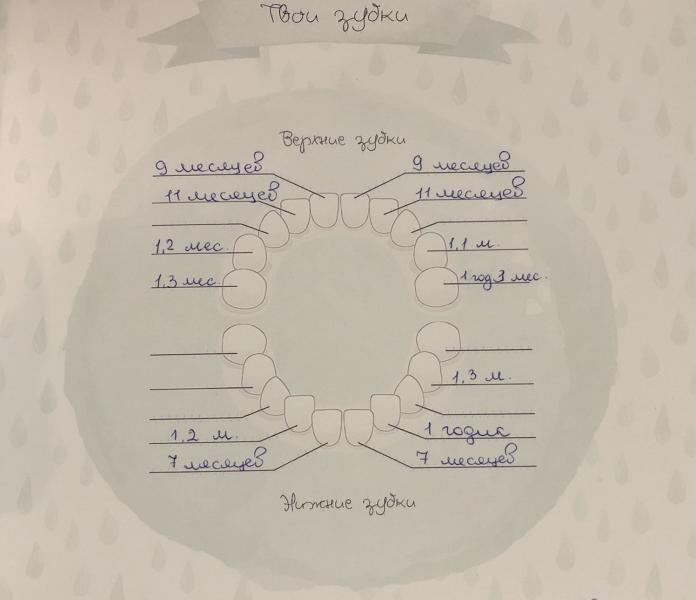 Твои зубки
Верхние зубки
9 месяцев 9 месяцев
11 месяцев 11 месяцев
1,2 мес. 1,1 м.
1,3 мес. 1 год 3 мес.
1,3 м.
1,2 м. 1 годик
7 месяцев 7 месяцев
Нижние зубки